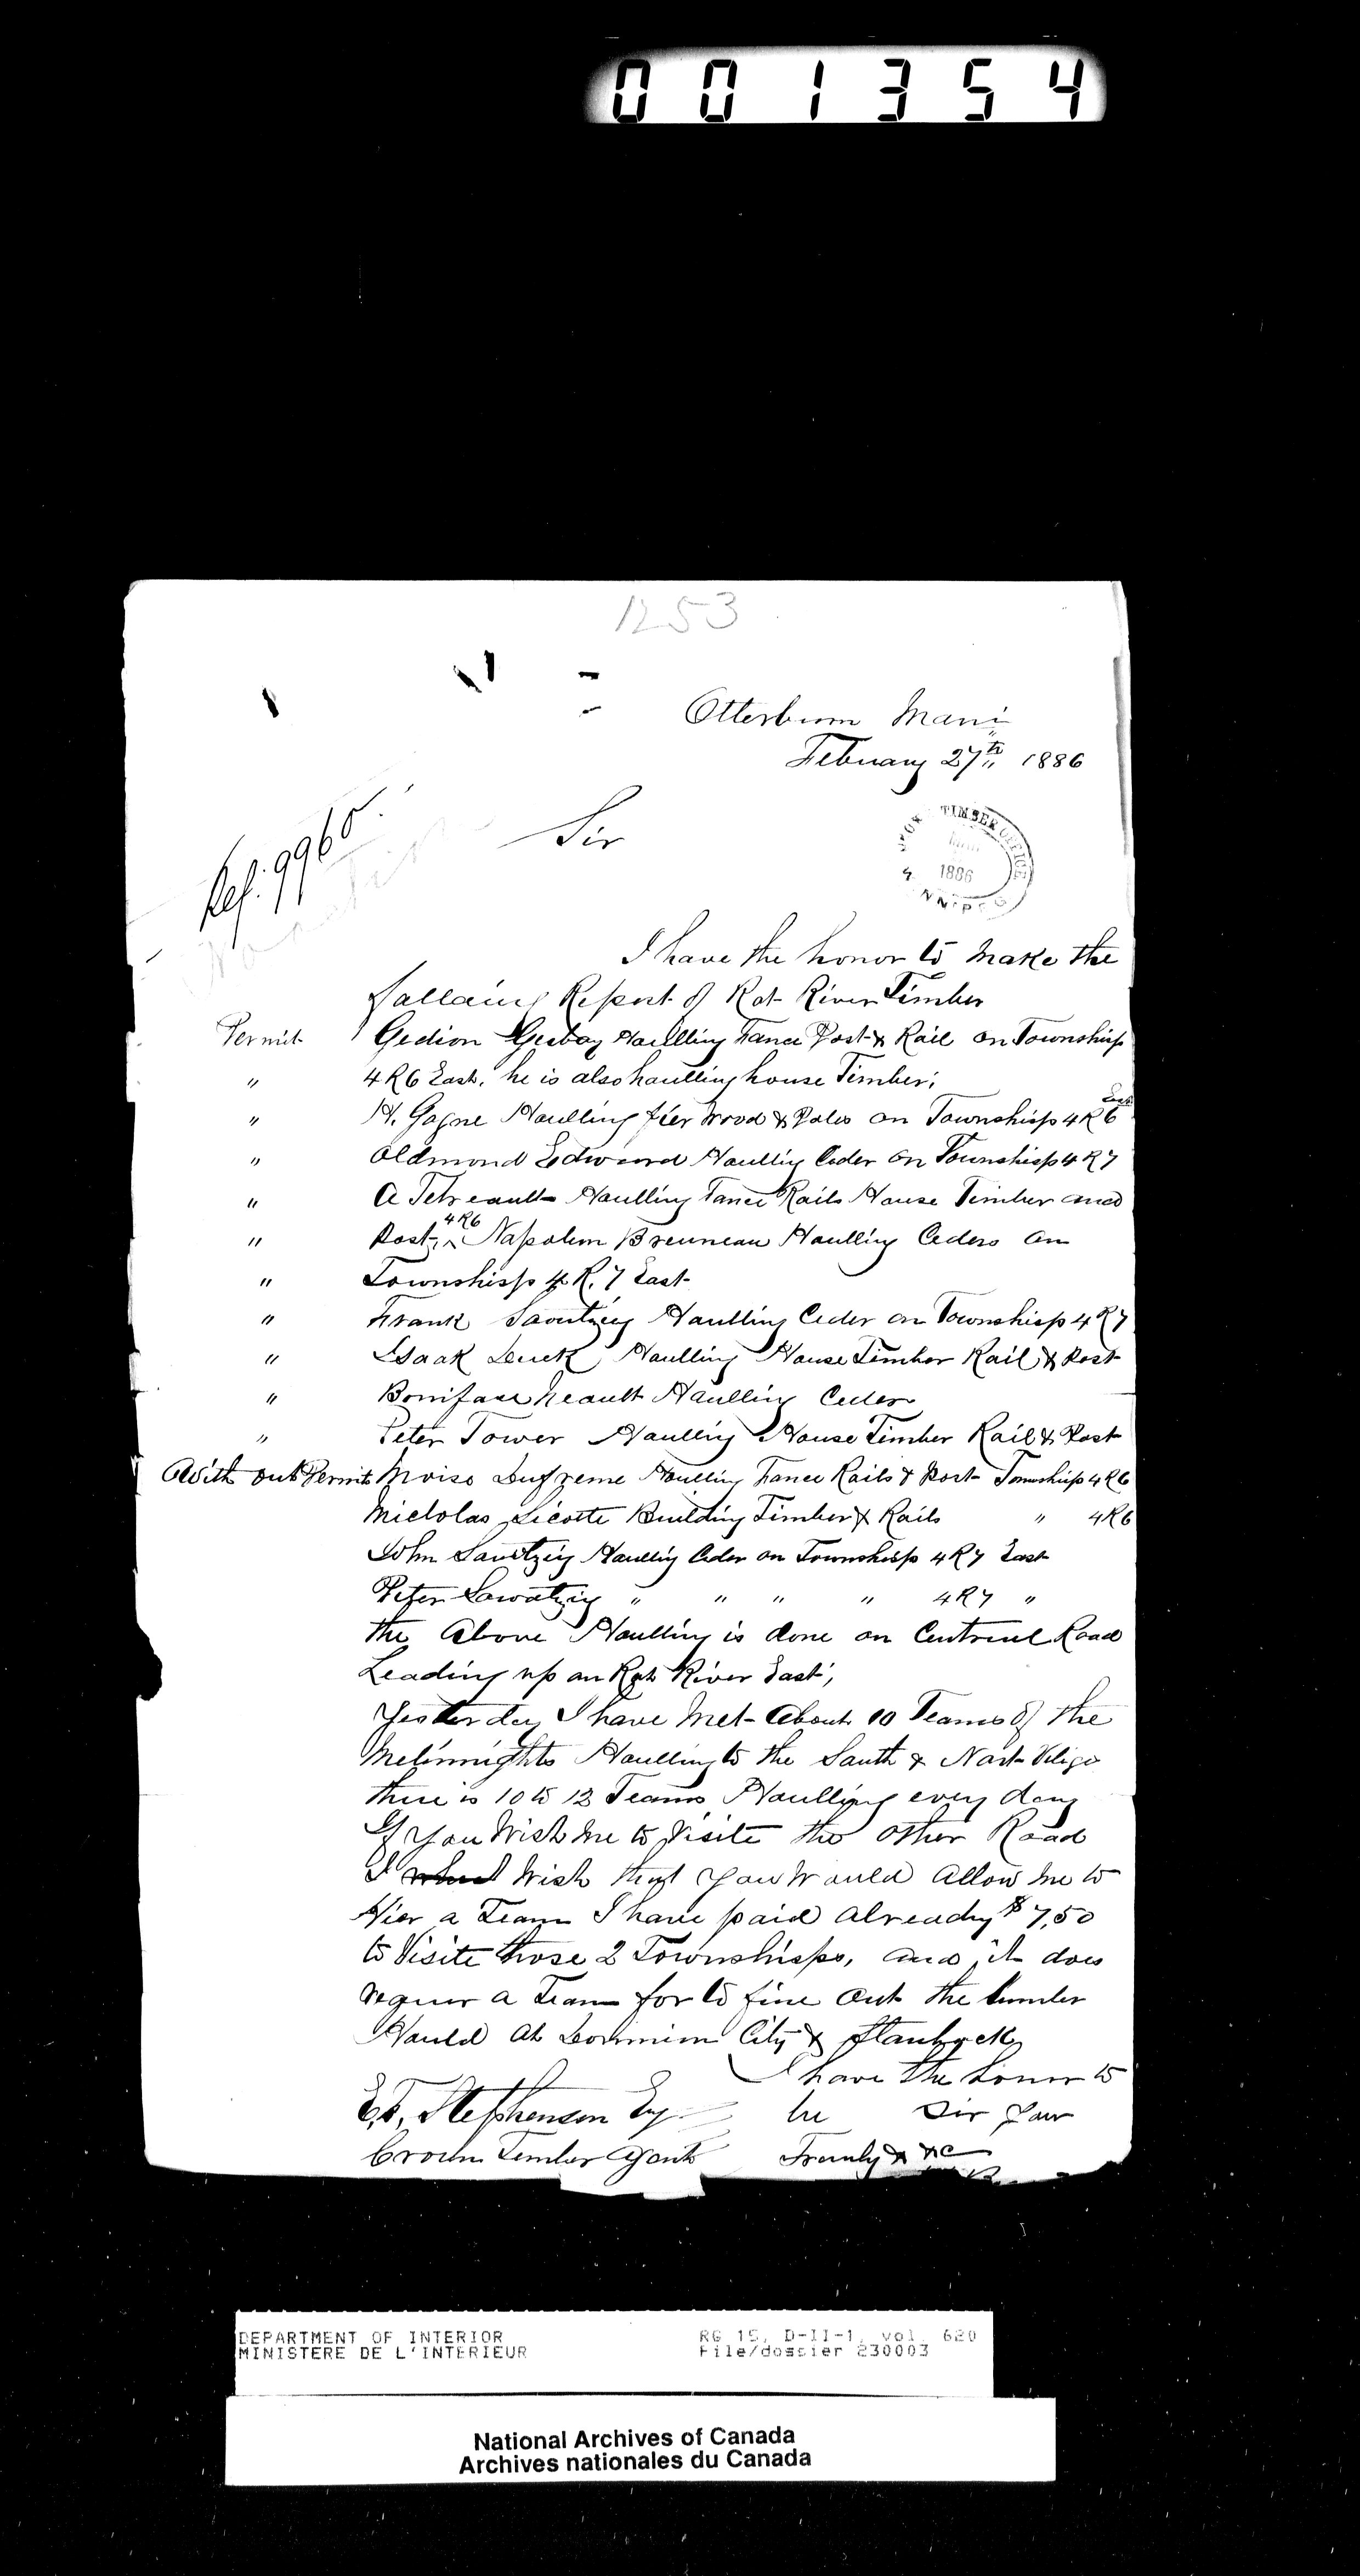 001354
1253
Otterburn Mani
February 27th 1886
Ref. 9960
Sir
TIMBER
1886
I have the honor to make the
fallaing Report of Rat River Timber
Permit Gedion Haulling Fance Post & Rail on Township
" 4 R6 East, he is also haulling house Timber;
" H. Gagne Haulling fier Wood & Poles on Township 4 R 6 East
" Oldmond Edward Haulling Ceder on Township 4 R 7
" A Tetreault Haulling Fance Rails House Timber and
" Post, 4R6 Napolien Bruneau Haulling Ceders on
" Township 4 R. 7 East
" Frank Haulling Ceder on Township 4 R 7
" Isaak Haulling House Timber Rail & Post
" Boniface Haulling Ceder
" Peter Tower Haulling House Timber Rail & Post
With out Permit Moise Haulling Fance Rails & Post Township 4 R6
Licotte Building Timber & Rails " 4R6
John Haulling Ceder on Township 4 R 7 East
Peter " " " " 4R7 "
the Above Haulling is done on Road
Leading up on Rat River East,
Yesterday I have Met About 10 Teams of the
Haulling to the South &
there is 10 to 12 Teams Haulling every day
If You Wish Me to Visite the other Road
I Wish that you Would Allow Me to
Hier a Team I have paid already $ 7,50
to Visite those 2 Townships, and it does
requir a Team for to fine out the timber
Hauld at Dominion City &
I have the honor to
E.F. Stephenson Esq be Sir your
Crown Timber Agent &c
DEPARTMENT OF INTERIOR RG 15, D-II-1, vol. 620
MINISTERE DE L'INTERIEUR File/dossier 230003
National Archives of Canada
Archives nationales du Canada